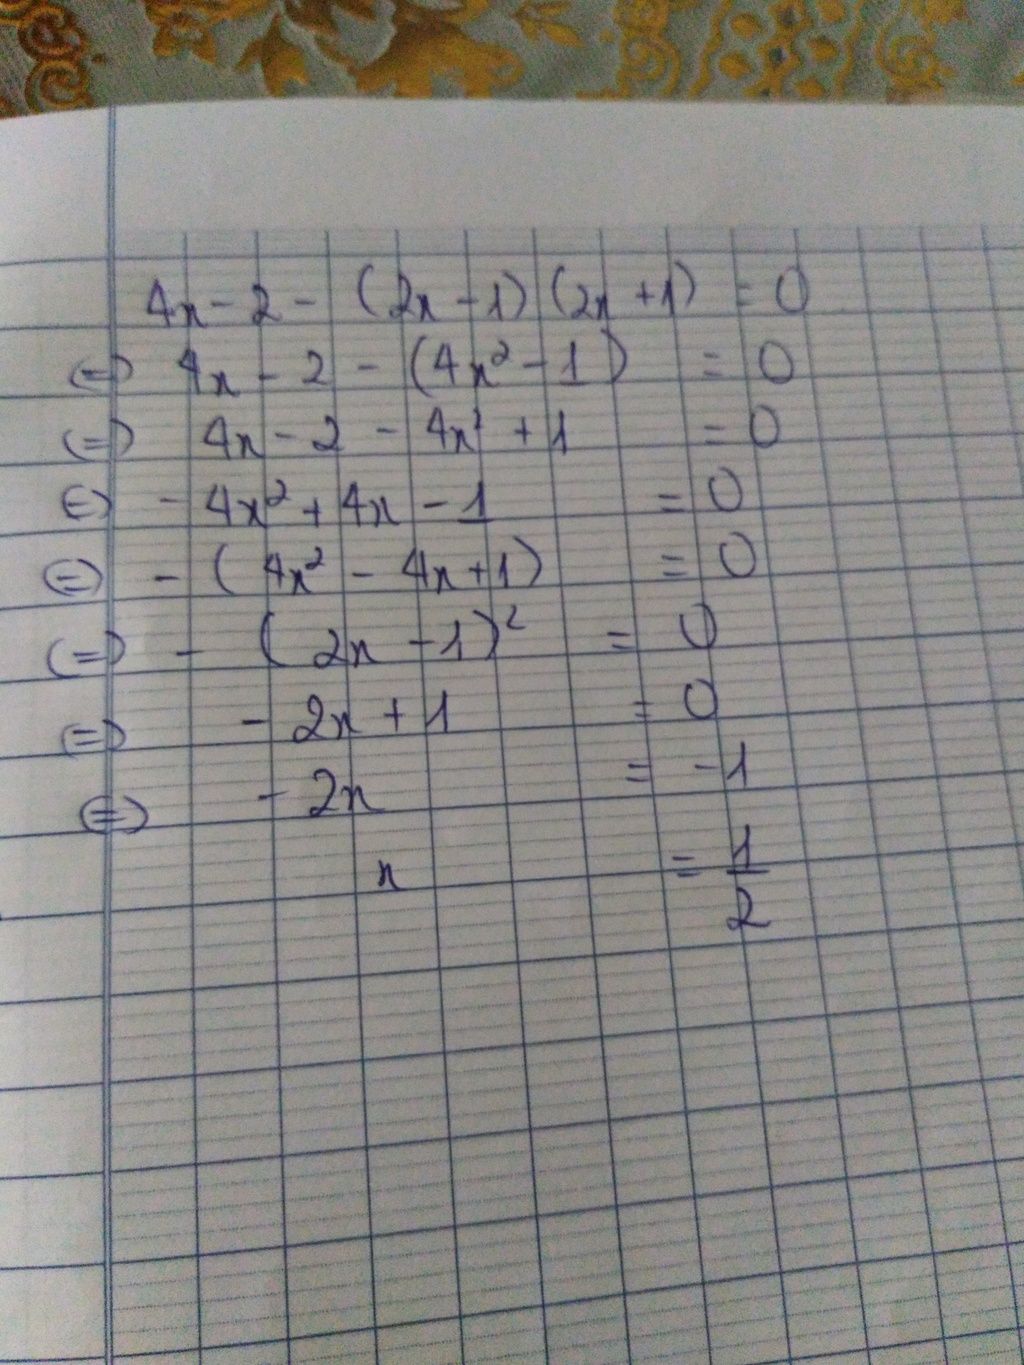 4x - 2 - (2x - 1) (2x + 1) = 0
<=> 4x - 2 - (4x² - 1) = 0
<=> 4x - 2 - 4x² + 1 = 0
<=> - 4x² + 4x - 1 = 0
<=> - (4x² - 4x + 1) = 0
<=> - (2x - 1)² = 0
<=> - 2x + 1 = 0
<=> - 2x = -1
x = 1/2